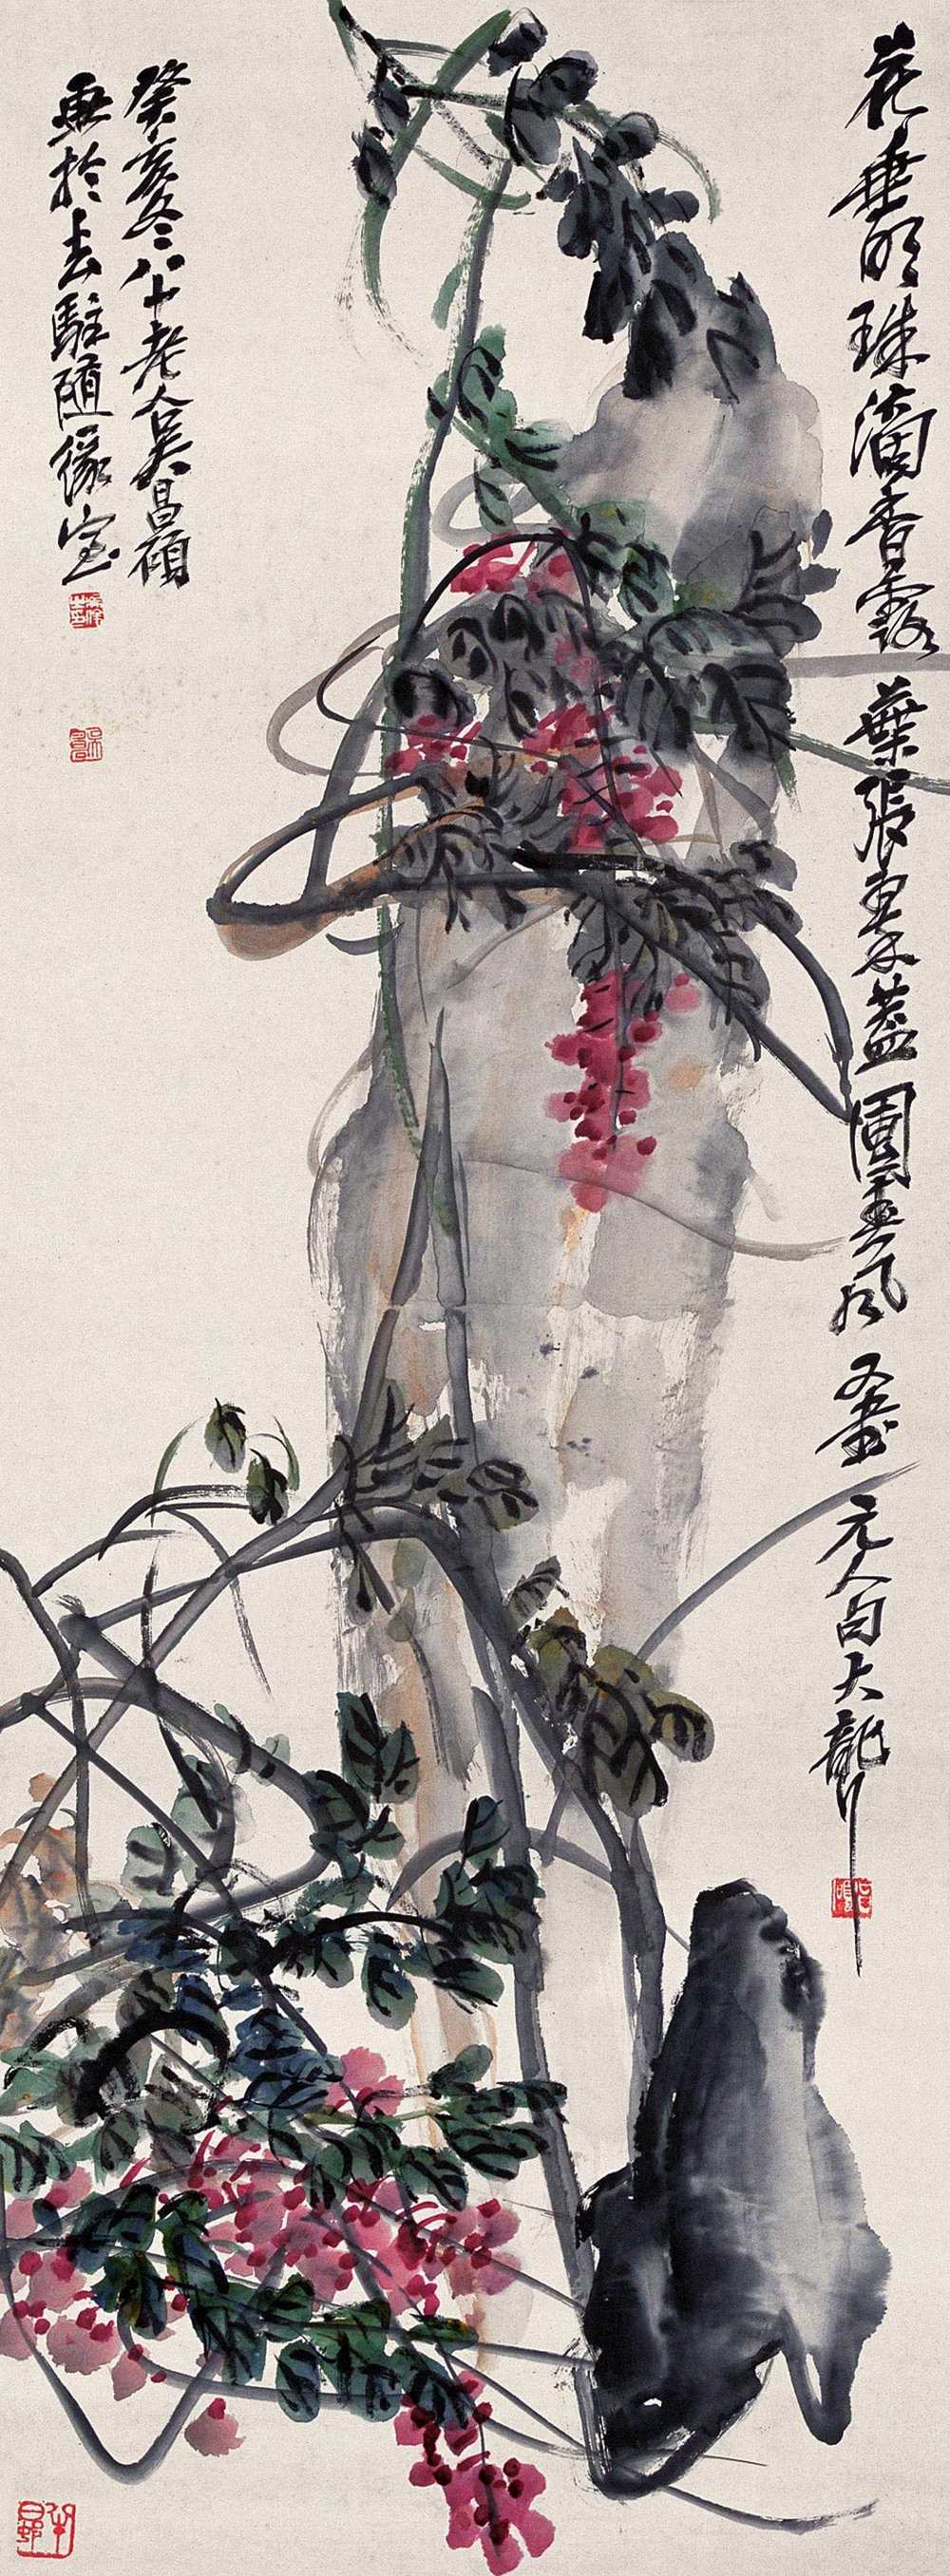 花垂明珠滴香露葉張翠蓋團春風又畫元人句大聾
癸亥冬八十老人吳昌碩
畫於去駐隨緣室